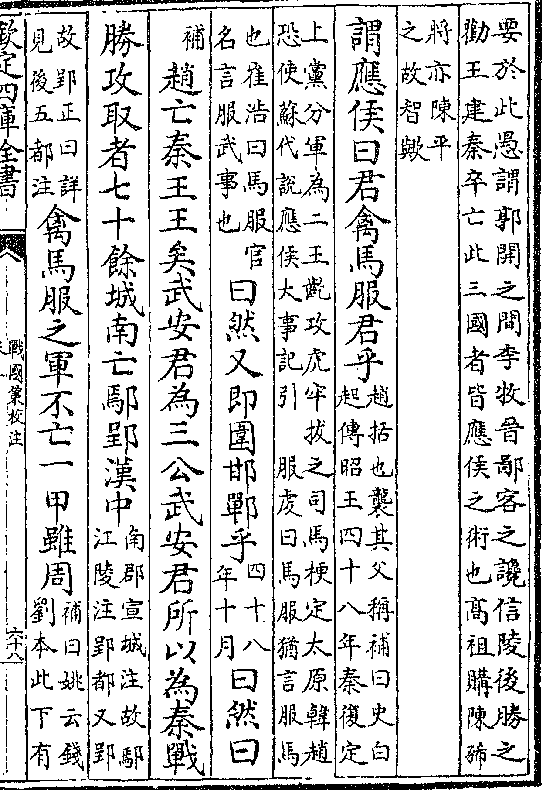 要於此愚謂郭開之間李牧晉鄙客之讒信陵後勝之
勸王建秦卒亡此三國者皆應侯之術也髙祖購陳豨
將亦陳平
之故智歟
謂應侯曰君禽馬服君乎
趙括也襲其父稱補曰史白
起傳昭王四十八年秦復定
上黨分軍為二王齕攻虎牢拔之司馬梗定太原韓趙
恐使蘇代說應侯大事記引 服虔曰馬服猶言服馬
也崔浩曰馬服官
名言服武事也
曰然又即圍邯鄲乎
四十八
年十月
曰然曰
補
趙亡秦王王矣武安君為三公武安君所以為秦戰
勝攻取者七十餘城南亡鄢郢漢中
南郡宣城注故鄢
江陵注郢都又郢
故郢正曰詳
見後五都注
禽馬服之軍不亡一甲雖周
補曰姚云錢
劉本此下有
欽定四庫全書
戰國策校注
六十八